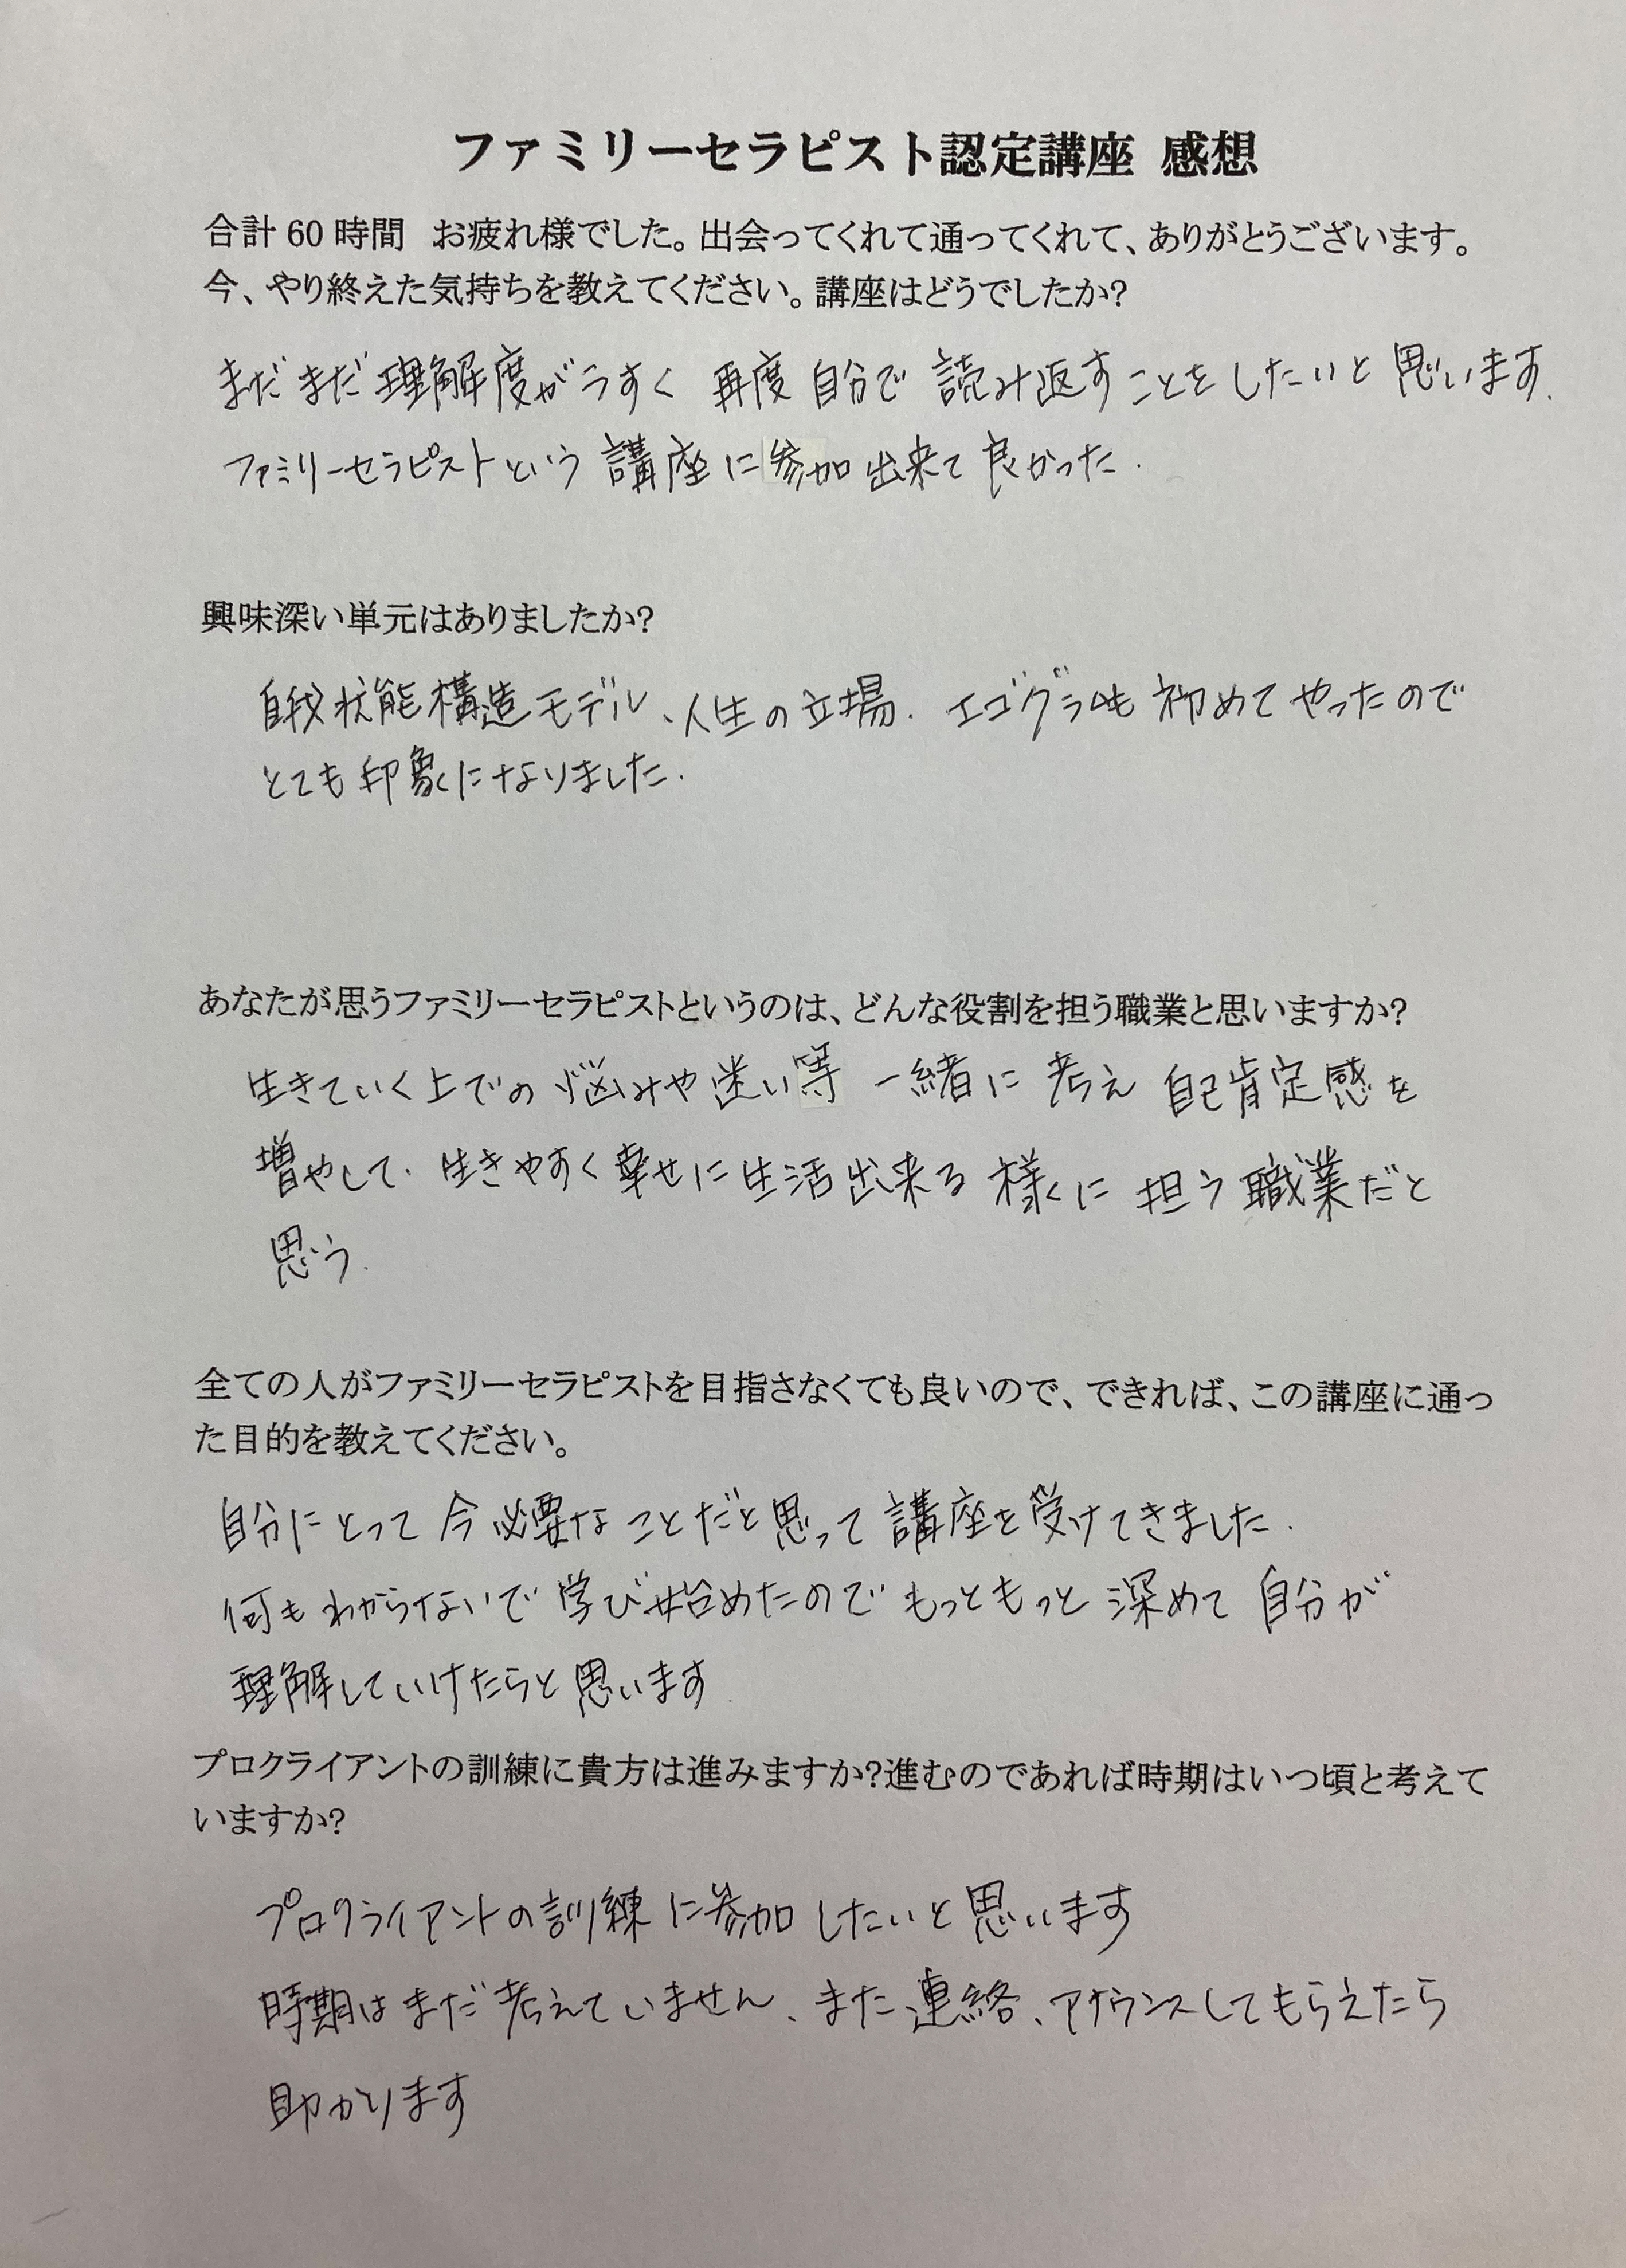 ファミリーセラピスト認定講座 感想
合計 60 時間　お疲れ様でした。出会ってくれて通ってくれて、ありがとうございます。
今、やり終えた気持ちを教えてください。講座はどうでしたか?
まだまだ理解度がうすく 再度 自分で 読み返すことをしたいと思います.
ファミリーセラピストという 講座に参加出来て良かった.
興味深い単元はありましたか?
自我状態構造モデル、人生の立場. エゴグラムも 初めて やったので
とても印象になりました.
あなたが思うファミリーセラピストというのは、どんな役割を担う職業と思いますか?
生きていく上での 悩みや迷い等 一緒に 考え 自己肯定感を
増やして. 生きやすく幸せに生活出来る 様くに 担う職業だと
思う.
全ての人がファミリーセラピストを目指さなくても良いので、できれば、この講座に通っ
た目的を教えてください。
自分にとって 今必要なことだと思って 講座を受けてきました.
何もわからないで 学び始めたので もっともっと 深めて 自分が
理解していけたらと思います
プロクライアントの訓練に貴方は進みますか?進むのであれば時期はいつ頃と考えて
いますか?
プロクライアントの訓練に参加したいと思います
時期はまだ考えていません、また連絡、アナウンスしてもらえたら
助かります